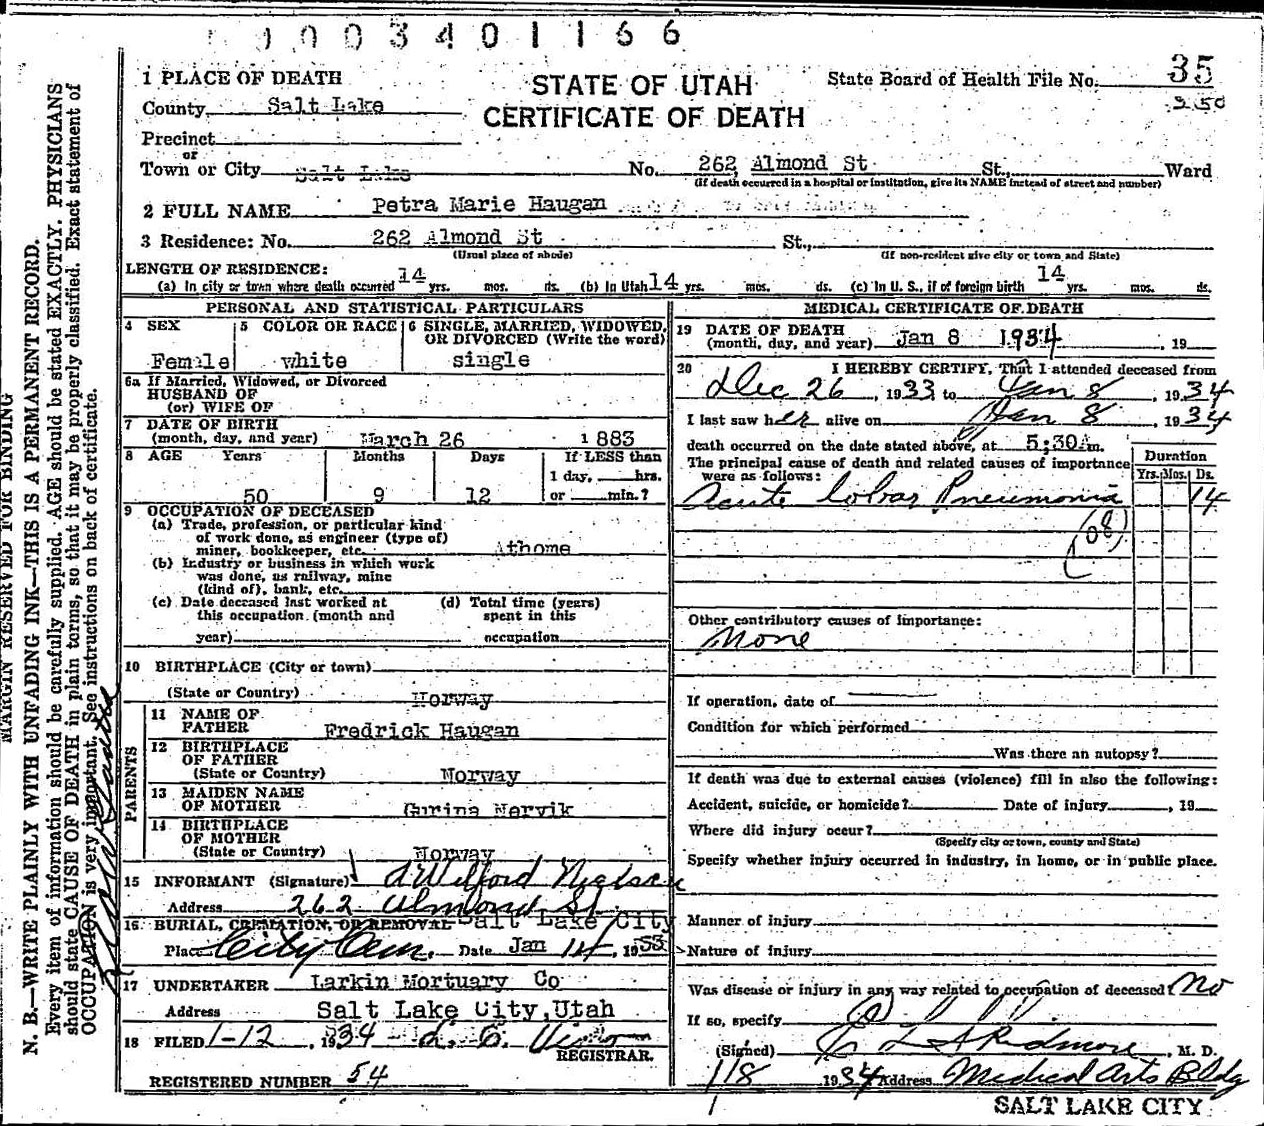 0 0 3 4 0 1 1 6 6
1 PLACE OF DEATH
County Salt Lake
Precinct
or
Town or City Salt Lake
STATE OF UTAH
CERTIFICATE OF DEATH
State Board of Health File No. 35
350
No. 262 Almond St St., Ward
(If death occurred in a hospital or institution, give its NAME instead of street and number)
2 FULL NAME Petra Marie Haugan
3 Residence: No. 262 Almond St St.,
(Usual place of abode) (If non-resident give city or town and State)
LENGTH OF RESIDENCE:
(a) In city or town where death occurred 14 yrs. mos. ds. (b) In Utah 14 yrs. mos. ds. (c) In U. S., if of foreign birth 14 yrs. mos. ds.
PERSONAL AND STATISTICAL PARTICULARS
4 SEX
Female
5 COLOR OR RACE
white
6 SINGLE, MARRIED, WIDOWED,
OR DIVORCED (Write the word)
single
6a If Married, Widowed, or Divorced
HUSBAND OF
(or) WIFE OF
7 DATE OF BIRTH
(month, day, and year) March 26 1883
8 AGE Years Months Days If LESS than
1 day, hrs.
50 9 12 or min.?
9 OCCUPATION OF DECEASED
(a) Trade, profession, or particular kind
of work done, as engineer (type of)
miner, bookkeeper, etc. Athome
(b) Industry or business in which work
was done, as railway, mine
(kind of), bank, etc.
(c) Date deceased last worked at
this occupation (month and
year)
(d) Total time (years)
spent in this
occupation
10 BIRTHPLACE (City or town)
(State or Country) Norway
PARENTS
11 NAME OF
FATHER Fredrick Haugan
12 BIRTHPLACE
OF FATHER
(State or Country) Norway
13 MAIDEN NAME
OF MOTHER Gurina Nervik
14 BIRTHPLACE
OF MOTHER
(State or Country) Norway
15 INFORMANT (Signature) A Wilford Nielsen
Address 262 Almond St.
Salt Lake City
16 BURIAL, CREMATION, OR REMOVAL
Place City Cem. Date Jan 11, 1933
17 UNDERTAKER Larkin Mortuary Co
Address Salt Lake City, Utah
18 FILED 1-12, 1934
REGISTRAR.
REGISTERED NUMBER 54
MEDICAL CERTIFICATE OF DEATH
19 DATE OF DEATH
(month, day, and year) Jan 8 1934, 19
20 I HEREBY CERTIFY, That I attended deceased from
Dec 26, 1933 to Jan 8, 1934
I last saw her alive on Jan 8, 1934
death occurred on the date stated above, at 5;30A m.
The principal cause of death and related causes of importance
were as follows:
Duration
Yrs. Mos. Ds.
Acute lobar Pneumonia 14
(108)
Other contributory causes of importance:
None
If operation, date of
Condition for which performed
Was there an autopsy?
If death was due to external causes (violence) fill in also the following:
Accident, suicide, or homicide? Date of injury, 19
Where did injury occur?
(Specify city or town, county and State)
Specify whether injury occurred in industry, in home, or in public place.
Manner of injury
Nature of injury
Was disease or injury in any way related to occupation of deceased? No
If so, specify
(Signed) L Skidmore, M. D.
1/8 1934 Address Medical Arts Bldg
SALT LAKE CITY
MARGIN RESERVED FOR BINDING
N. B.—WRITE PLAINLY WITH UNFADING INK—THIS IS A PERMANENT RECORD.
Every item of information should be carefully supplied. AGE should be stated EXACTLY. PHYSICIANS
should state CAUSE OF DEATH in plain terms, so that it may be properly classified. Exact statement of
OCCUPATION is very important. See instructions on back of certificate.